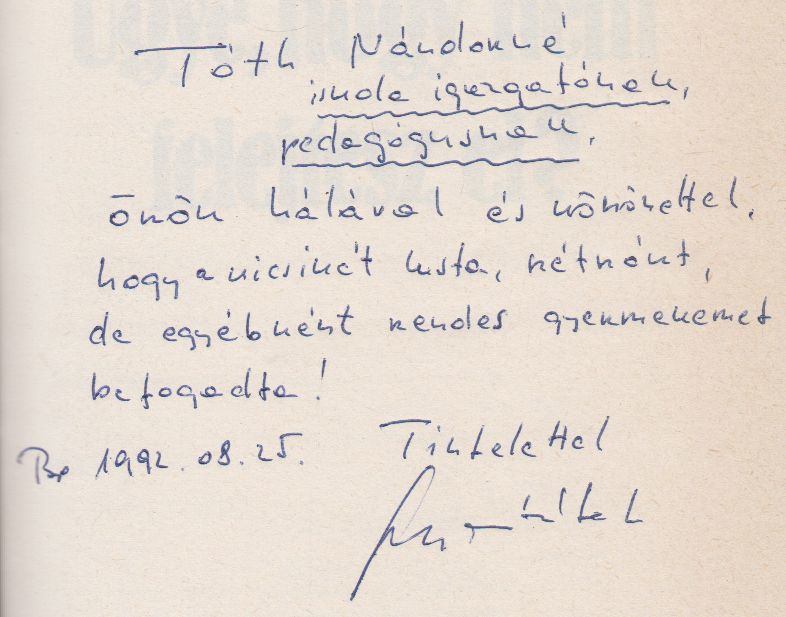 Tóth Nándorné
iskola igazgatónak,
pedagógusnak,
örök hálával és köszönettel,
hogy a kicsikét lusta,
de egyébként rendes gyermekemet
befogadta!
Bp 1992.08.25. Tisztelettel